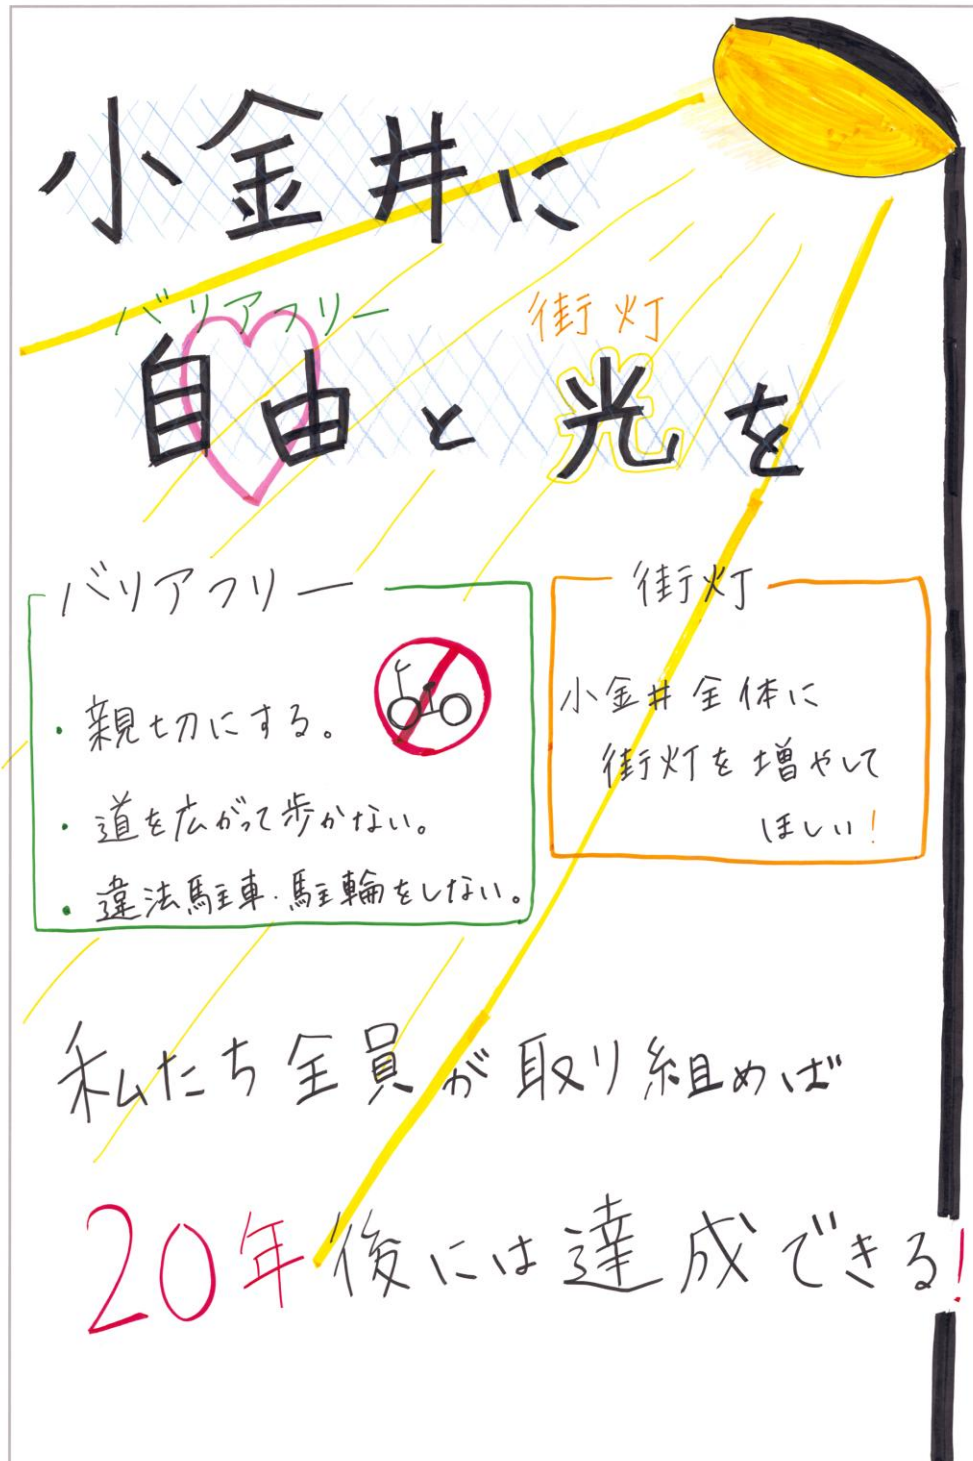 小金井に
バリアフリー 街灯
自由と光を
バリアフリー
・親切にする。
・道を広がって歩かない。
・違法駐車・駐輪をしない。
街灯
小金井全体に
街灯を増やして
ほしい!
私たち全員が取り組めば
20年後には達成できる!